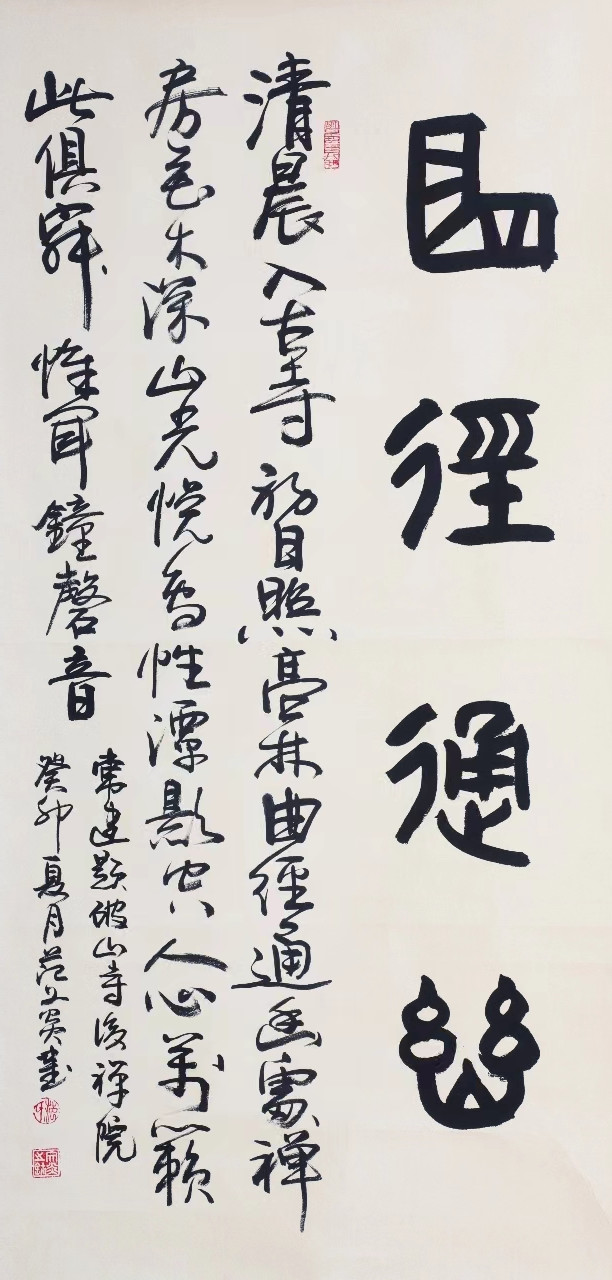 曲徑通幽
清晨入古寺初日照高林曲徑通幽處禪
房花木深山光悅鳥性潭影空人心萬籟
此俱寂惟聞鐘磬音
常建題破山寺後禪院
癸卯夏月范